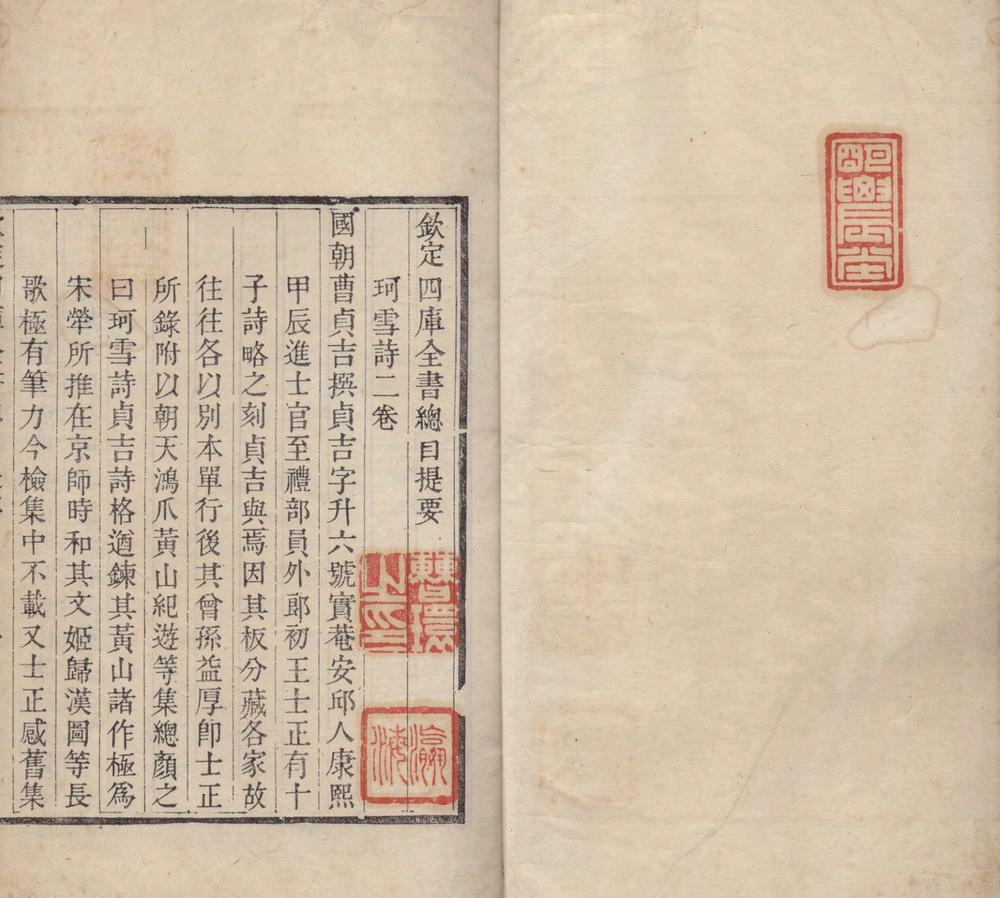 欽定四庫全書總目提要
珂雪詩二卷
國朝曹貞吉撰貞吉字升六號實菴安邱人康熙
甲辰進士官至禮部員外郎初王士正有十
子詩略之刻貞吉與焉因其板分藏各家故
往往各以別本單行後其曾孫益厚卽士正
所錄附以朝天鴻爪黃山紀遊等集總顏之
曰珂雪詩貞吉詩格遒鍊其黃山諸作極爲
宋犖所推在京師時和其文姬歸漢圖等長
歌極有筆力今檢集中不載又士正感舊集
之印
瀛海